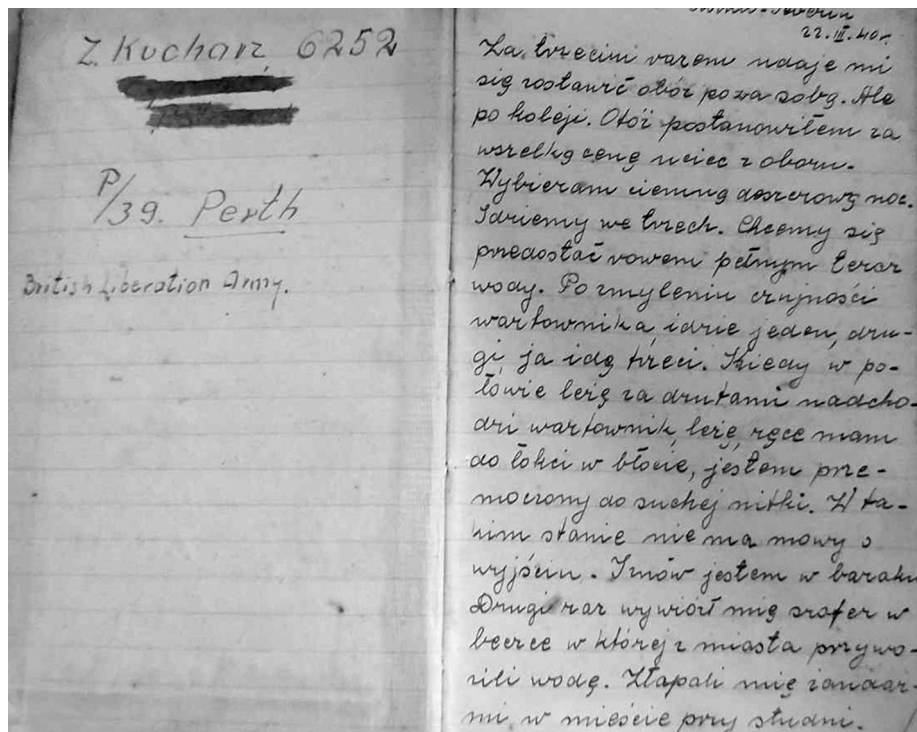 Z. Kucharz 6252
P/39. Perth
British Liberation Army.
22.III.40r.
Za trzecim razem udaje mi
się zostawić obóz poza sobą. Ale
po koleji. Otóż postanowiłem za
wszelką cenę uciec z obozu.
Wybieram ciemną deszczową noc.
Idziemy we trzech. Chcemy się
przedostać rowem pełnym teraz
wody. Po zmyleniu czujności
wartownika, idzie jeden, dru-
gi, ja idę trzeci. Kiedy w po-
łowie leżę za drutami nadcho-
dzi wartownik, leżę, ręce mam
do łokci w błocie, jestem prze-
moczony do suchej nitki. W ta-
kim stanie nie ma mowy o
wyjściu. Znów jestem w baraku
Drugi raz wywiózł mię szofer w
beczce w której z miasta przywo-
zili wodę. Złapali mię żandar-
mi, w mieście przy studni.